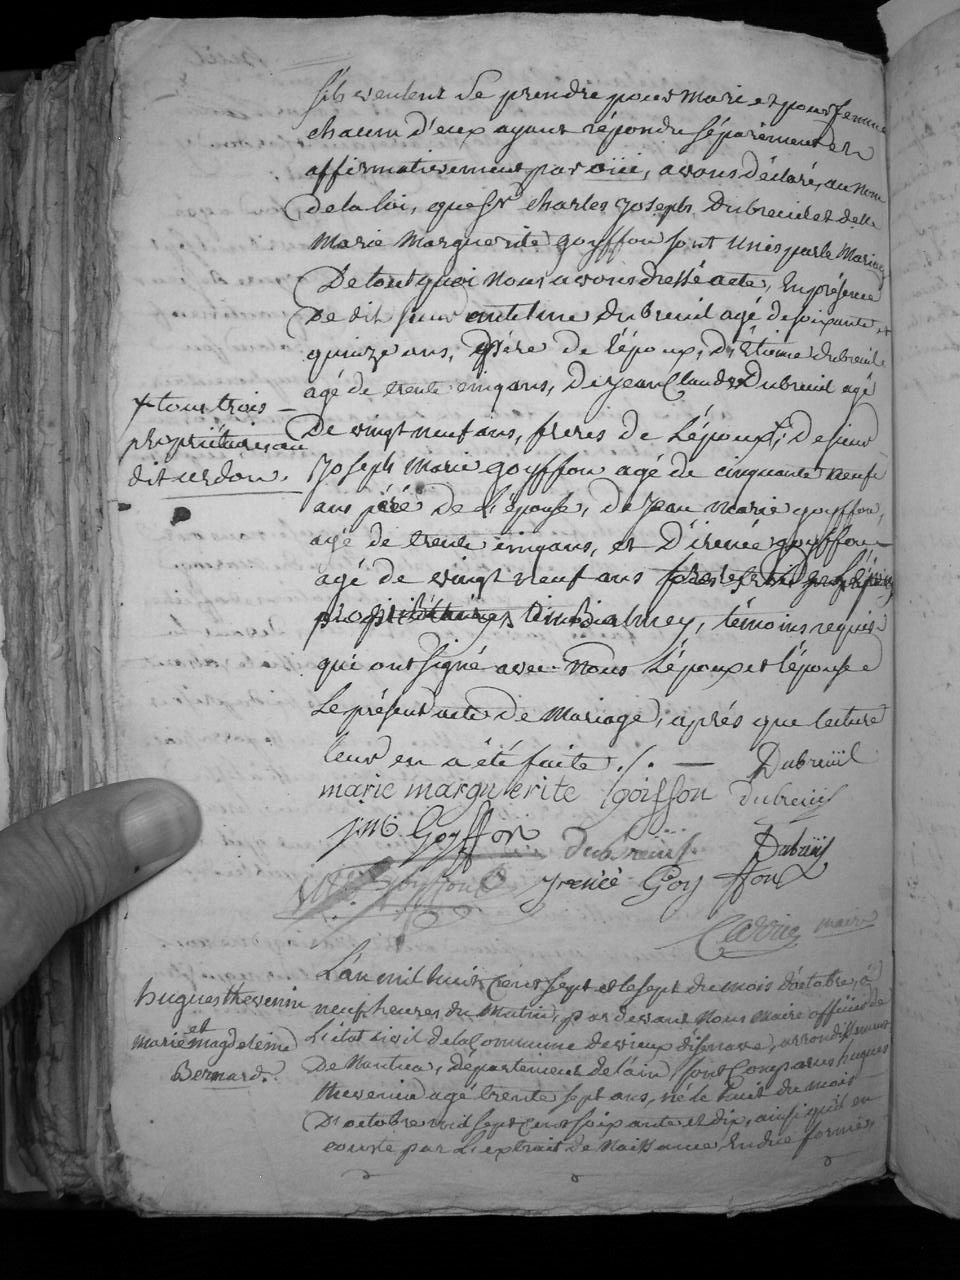 s'ils veulent se prendre pour mari et pour femme
chacun d'eux ayant répondu séparément et
affirmativement par oüi, avons déclaré, au nom
de la loi, que Sr charles joseph Dubreuil et delle
marie marguerite goyffon sont unis par le mariage
De tout quoi nous avons dressé acte, En présence
De dit sieur antelme dubreuil agé de soixante et
quinze ans, père de l'époux, d'Etiene dubreuil
agé de trente cinq ans, De jean Claude Dubreuil agé
+ tous trois
propriétaires au
dit verdon.
De vingt neuf ans, freres de L'époux +, De sieur
Joseph marie goyffon agé de cinquante neuf
ans père de l'épouse, de jean marie goyffon,
agé de trente cinq ans, et D'irénée goyffon
agé de vingt neuf ans
témoins requis
qui ont signé avec nous L'époux et l'épouse
Le présent acte de mariage, après que lecture
leur en a été faite ./. — Dubreüil
marie marguerite goiffon dubreüil
j m Goyffon dubreüil Dubreüil
goyffon irenée Goyffon
maire
hugues thevenin
et
marie magdeleine
Bernard.
L'an mil huit Cent sept et le sept du mois d'octobre, à
neuf heures du matin, par devant nous maire officier de
L'état civil de la Commune de vieux d'isenave, arrondissement
De Nantua, Département de l'ain, sont Comparus hugues
thevenin agé trente sept ans, né le huit du mois
D'octobre mil sept cent soixante et dix, ainsi qu'il en
conste par L'extrait de naissance, En due forme,